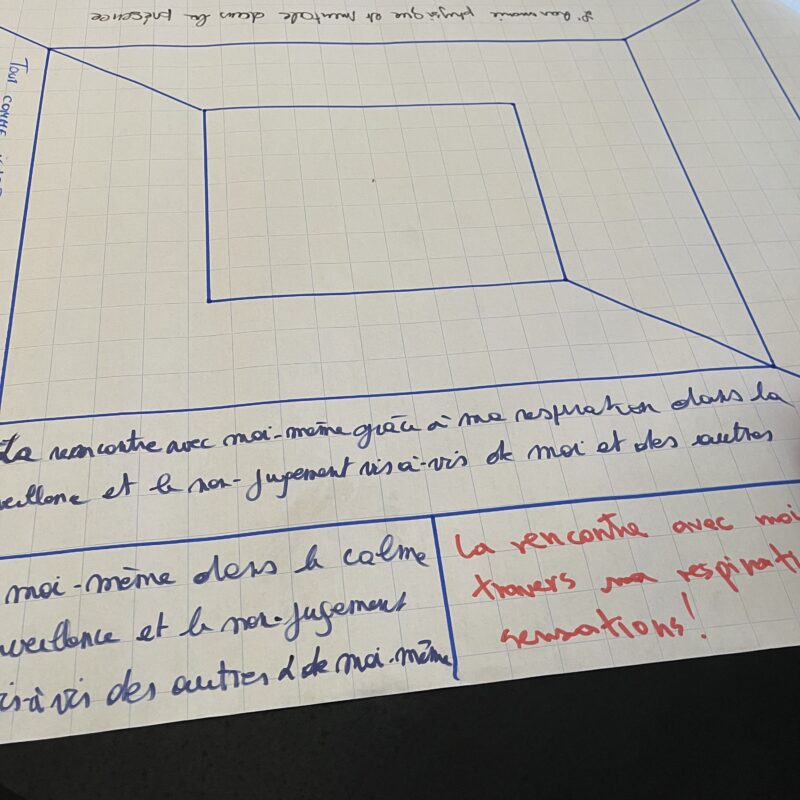 L'harmonie physique et mentale dans la présence
Tout comme
La rencontre avec moi-même grâce à ma respiration dans la
veillance et le non-jugement vis à-vis de moi et des autres
moi-même dans le calme
veillance et le non-jugement
is-à vis des autres & de moi-même
La rencontre avec moi
travers ma respirati
sensations!